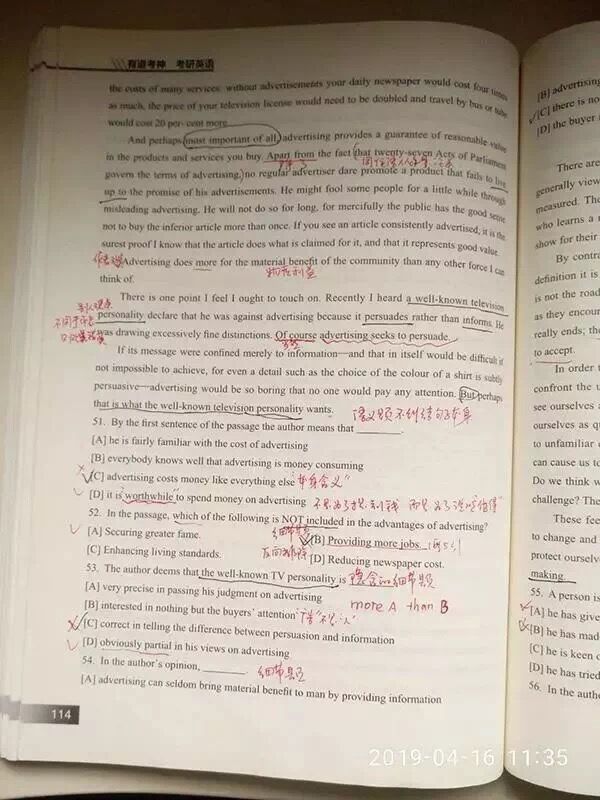 有道考神 考研英语
the costs of many services: without advertisements your daily newspaper would cost four times
as much, the price of your television license would need to be doubled and travel by bus or tube
would cost 20 per cent more.
And perhaps most important of all advertising provides a guarantee of reasonable value
in the products and services you buy. Apart from the fact that twenty-seven Acts of Parliament
govern the terms of advertising, no regular advertiser dare promote a product that fails to live
up to the promise of his advertisements. He might fool some people for a little while through
misleading advertising. He will not do so for long, for mercifully the public has the good sense
not to buy the inferior article more than once. If you see an article consistently advertised, it is the
surest proof I know that the article does what is claimed for it, and that it represents good value.
Advertising does more for the material benefit of the community than any other force I can
物质利益
think of.
There is one point I feel I ought to touch on. Recently I heard a well-known television
personality declare that he was against advertising because it persuades rather than informs. He
was drawing excessively fine distinctions. Of course advertising seeks to persuade.
If its message were confined merely to information—and that in itself would be difficult if
not impossible to achieve, for even a detail such as the choice of the colour of a shirt is subtly
persuasive—advertising would be so boring that no one would pay any attention. But perhaps
that is what the well-known television personality wants.
51. By the first sentence of the passage the author means that
[A] he is fairly familiar with the cost of advertising
[B] everybody knows well that advertising is money consuming
[C] advertising costs money like everything else "本身含义"
[D] it is worthwhile to spend money on advertising
52. In the passage, which of the following is NOT included in the advantages of advertising?
细节题
[A] Securing greater fame. [B] Providing more jobs.
[C] Enhancing living standards. [D] Reducing newspaper cost.
53. The author deems that the well-known TV personality is 细节题
[A] very precise in passing his judgment on advertising
more A than B
[B] interested in nothing but the buyers' attention
[C] correct in telling the difference between persuasion and information
[D] obviously partial in his views on advertising
54. In the author's opinion, 细节题
[A] advertising can seldom bring material benefit to man by providing information
114
[B] advertising
[C] there is no
[D] the buyer
There are
generally view
measured. The
who learns a
show for their
By contra
definition it is
is not the road
as they encour
really ends; the
to accept.
In order
confront the u
see ourselves
ourselves as q
to unfamiliar
can cause us to
Do we think w
challenge? The
These feel
to change and
protect ourselve
making.
55. A person is
[A] he has give
[B] he has mad
[C] he is keen
[D] he has tried
56. In the autho
2019-04-16 11:35